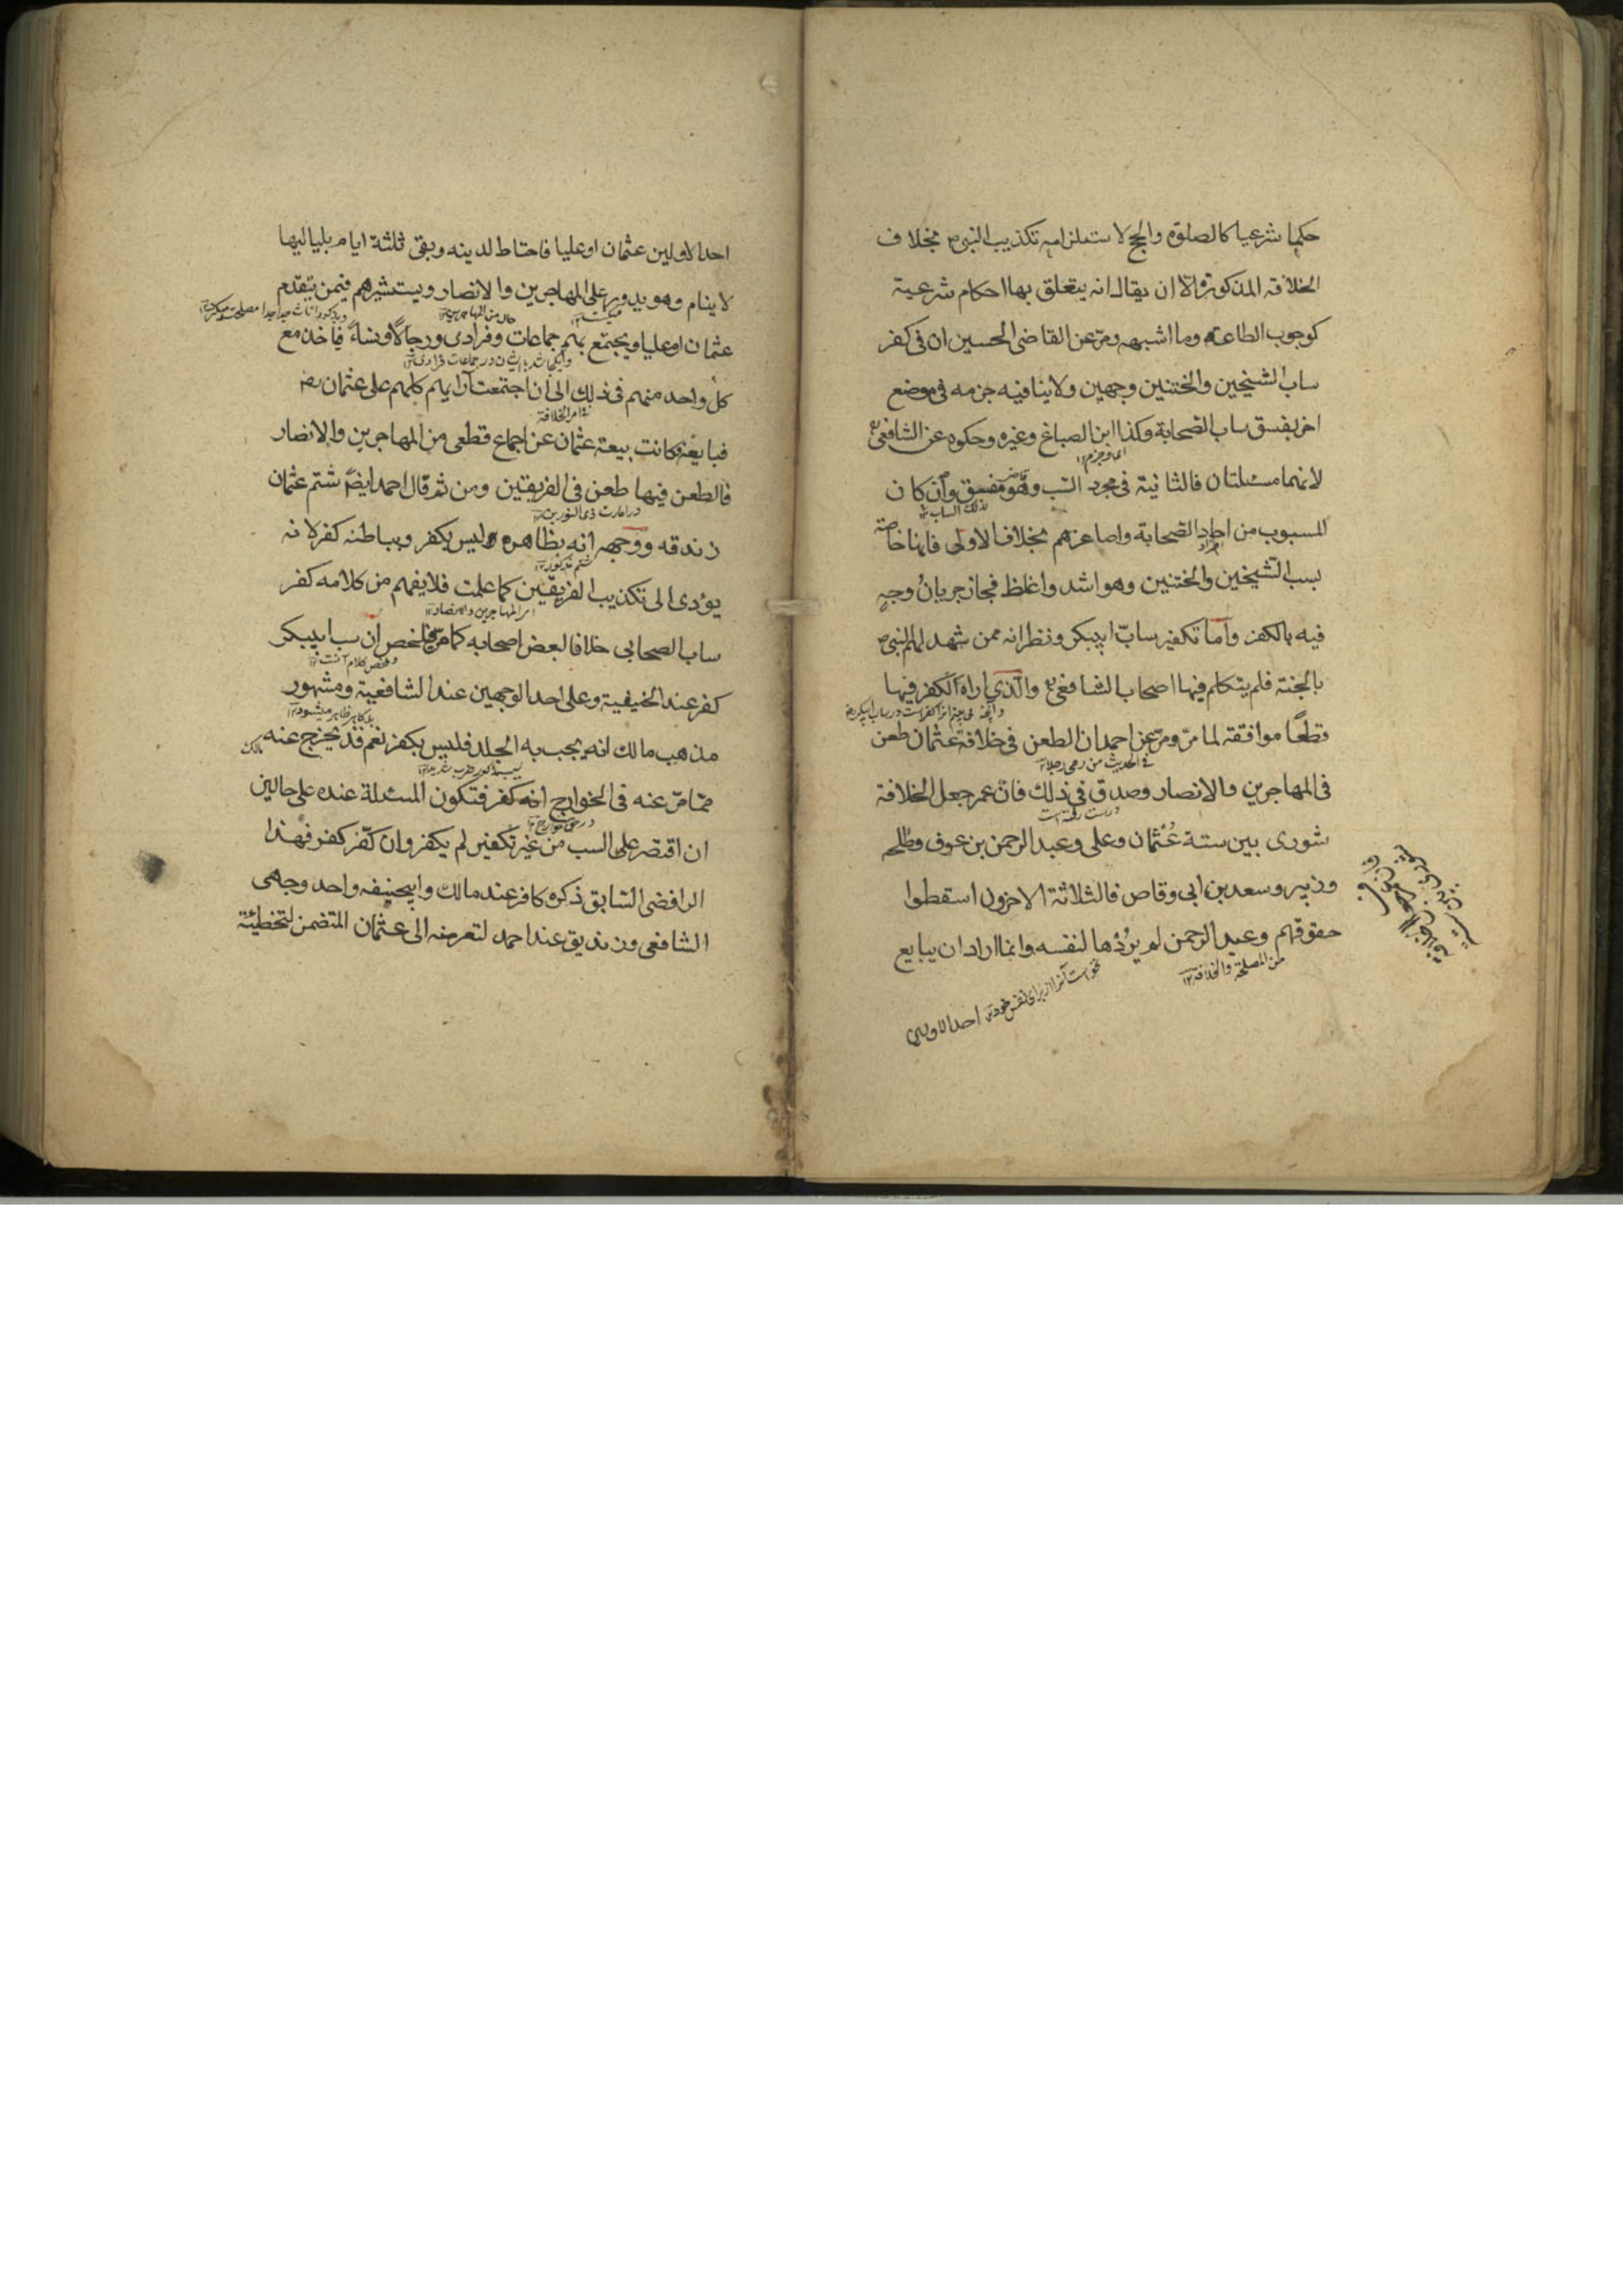 حكما شرعيا كالصلوة والحج لاستلزامه تكذيب النبى ص بخلاف
الخلافة المذكورة والا ان يقال انه يتعلق بها احكام شرعية
كوجوب الطاعة وما اشبهه ومر عن القاضى الحسين ان فى كفر
ساب الشيخين والختنين وجهين ولا ينافيه جزمه فى موضع
اخر بفسق ساب الصحابة وكذا ابن الصباغ وغيره وحكوه عن الشافعى
اى وجزم ١٢
لانهما مسئلتان فالثانية فى مجرد السب وهو مفسق وان كان
لذلك الساب
المسبوب من احاد الصحابة واصاغرهم بخلاف الاولى فانها خاصة
بسب الشيخين والختنين وهو اشد واغلظ فجاز جريان وجه
فيه بالكفر واما تكفير ساب ابيبكر ونظرائه ممن شهد لهم النبى ص
بالجنة فلم يتكلم فيها اصحاب الشافعى والذى اراه الكفر فيها
قطعا موافقة لما مر ومر عن احمد ان الطعن فى خلافة عثمان طعن
فى المهاجرين والانصار وصدق فى ذلك فان عمر جعل الخلافة
شورى بين ستة عثمان وعلى وعبد الرحمن بن عوف وطلحه
وزبير وسعد بن ابى وقاص فالثلاثة الاخرون اسقطوا
حقوقهم وعبد الرحمن لم يردها لنفسه وانما اراد ان يبايع
من المصلحة والخلافة ١٢
نخواست آنرا از برای نفس خود
احد الاولين
احد الاولين عثمان او عليا فاحتاط لدينه وبقى ثلثة ايام بلياليها
لا ينام وهو يدور على المهاجرين والانصار ويستشيرهم فيمن يتقدم
عثمان او عليا ويجتمع بهم جماعات وفرادى ورجالا ونساء فاخذ مع
كل واحد منهم فى ذلك الى ان اجتمعت آرايهم كلهم على عثمان رض
امر الخلافة
فبايعه فكانت بيعة عثمان عن اجماع قطعى من المهاجرين والانصار
فالطعن فيها طعن فى الفريقين ومن ثم قال احمد ايضا شتم عثمان
در امارت ذى النورين
زندقة ووجهه انه بظاهره وليس بكفر وبباطنه كفر لانه
شتم مذكور ١٢
يؤدى الى تكذيب الفريقين كما علمت فلا يفهم من كلامه كفر
المهاجرين والانصار ١٢
ساب الصحابى خلافا لبعض اصحابه كما مر فلخص ان سب ابيبكر
كفر عند الحنيفية وعلى احد الوجهين عند الشافعية ومشهور
مذهب مالك انه يجب به الجلد فليس بكفر نعم قد يخرج عنه
مالك
مما مر عنه فى الخوارج انه كفر فتكون المسئلة عنده على حالين
در حق خوارج ١٢
ان اقتصر على السب من غير تكفير لم يكفر وان كفر كفر فهذا
الرافضى السابق ذكره كافر عند مالك وابيحنيفه واحد وجهى
الشافعى وزنديق عند احمد لتعرضه الى عثمان المتضمن لتخطئة